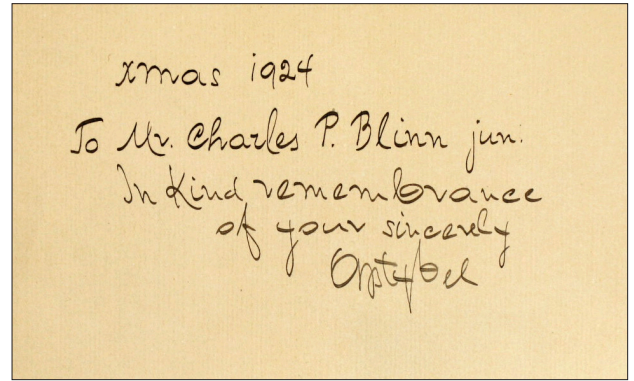 xmas 1924
To Mr. Charles P. Blinn jun.
In Kind remembrance
of your sincerely